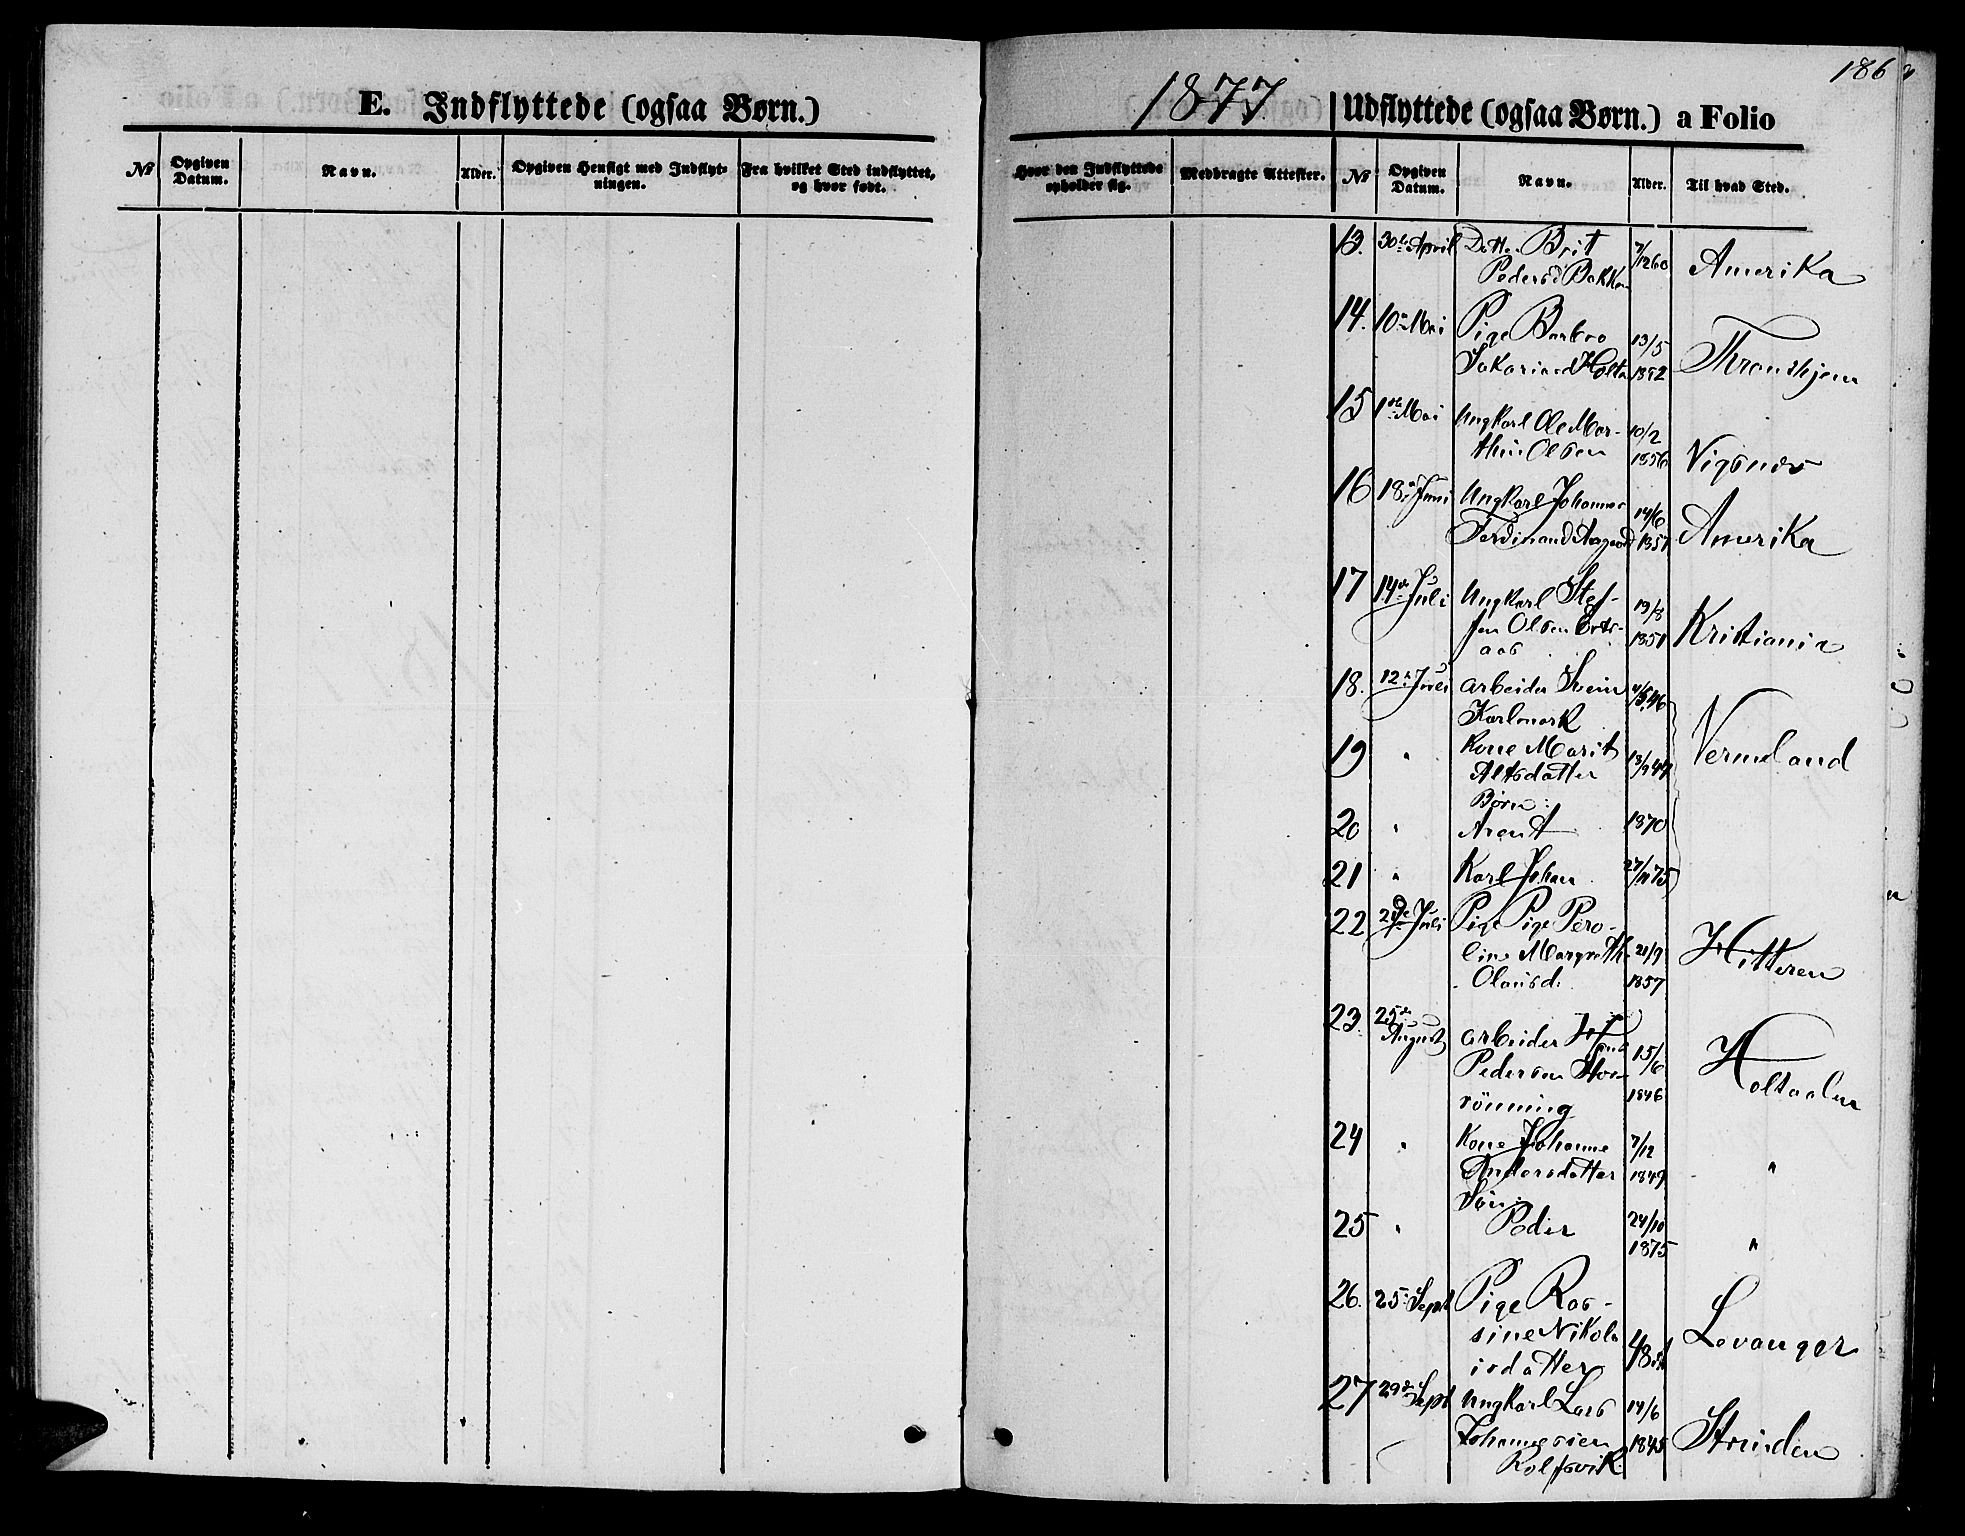 186
E. Indflyttede (ogsaa Børn.)
1877
Udflyttede (ogsaa Børn.) a Folio
No
Opgiven Datum.
Navn.
Alder.
Opgiven Hensigt med Indflytningen.
Fra hvilket Sted indflyttet, og hvor født.
Hvor den Indflyttede opholder sig.
Medbragte Attester.
No
Opgiven Datum.
Navn.
Alder.
Til hvad Sted.
13. 30te April Datter Brit 7/12 60 Amerika
Pedersd Bakken
14. 10de Mai Pige Barbro 13/5 Thronhjem
Sakariasd Holta
15 1ste Mai Ungkarl Ole Mar- 10/2
thin Olsen 1856 Vigsnæs
16 18de Juni Ungkarl Johannes 14/6
Ferdinand 1857 Amerika
17 14de Juli Ungkarl Stef- 19/8
fen Olsen 1851 Kristiania
aas
18. 12te Juli arbeider Svein
Karlmark Vermeland
19 " Kone Marit
Altsdatter
Børn:
20 " Arent 1870
21 " Karl Johan 27/11 75
22 Juli Pige Pige Pero-
line Margreth 21/9 Hitteren
Olausd. 1857
23. 25de August arbeider Hans 15/6
Pedersen Stor- Holtaalen
rönning 1846
24 " Kone Johanne 7/12
Andersdatter 1849 "
Sön:
25 " Peder 24/10
1875 "
26. 25 Sept Pige Ras-
sine Nikola- Levanger
isdatter
27 29de Sept Ungkarl Lars 14/6
Johannessen 1845 Strinden
Rolfsvik